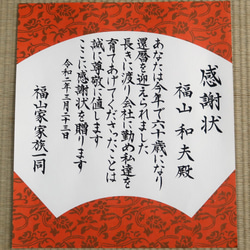 感謝状
福山 和夫殿
あなたは今年で六十歳になり
還暦を迎えられました
長きに渡り会社に勤め私達を
育てあげてくださったことは
誠に尊敬に値します
ここに感謝状を贈ります
令和二年三月二十三日
福山家家族一同